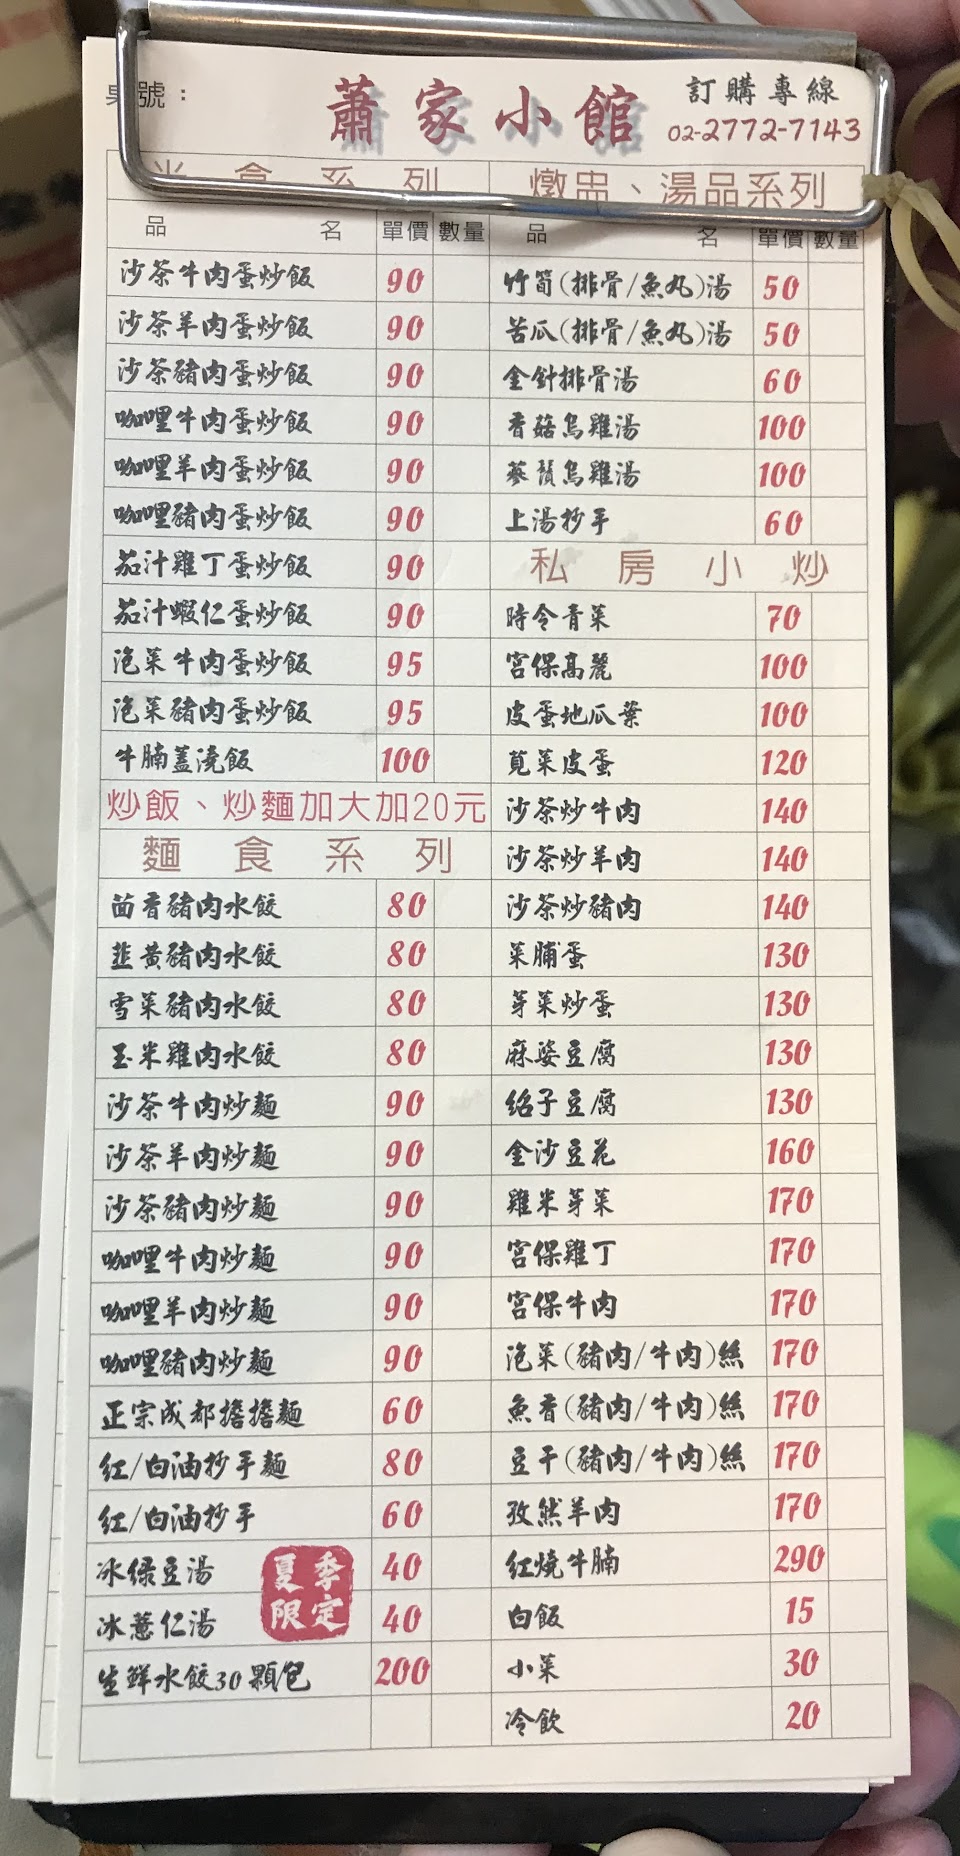 桌號：
蕭家小館
訂購專線
02-2772-7143
米食系列
品名 單價 數量
沙茶牛肉蛋炒飯 90
沙茶羊肉蛋炒飯 90
沙茶豬肉蛋炒飯 90
咖哩牛肉蛋炒飯 90
咖哩羊肉蛋炒飯 90
咖哩豬肉蛋炒飯 90
茄汁雞丁蛋炒飯 90
茄汁蝦仁蛋炒飯 90
泡菜牛肉蛋炒飯 95
泡菜豬肉蛋炒飯 95
牛腩蓋澆飯 100
炒飯、炒麵加大加20元
麵食系列
茴香豬肉水餃 80
韮黃豬肉水餃 80
雪菜豬肉水餃 80
玉米雞肉水餃 80
沙茶牛肉炒麵 90
沙茶羊肉炒麵 90
沙茶豬肉炒麵 90
咖哩牛肉炒麵 90
咖哩羊肉炒麵 90
咖哩豬肉炒麵 90
正宗成都擔擔麵 60
紅/白油抄手麵 80
紅/白油抄手 60
冰綠豆湯 40
冰薏仁湯 40
夏季
限定
生鮮水餃30顆包 200
燉盅、湯品系列
品名 單價 數量
竹筍(排骨/魚丸)湯 50
苦瓜(排骨/魚丸)湯 50
金針排骨湯 60
香菇烏雞湯 100
蔘鬚烏雞湯 100
上湯抄手 60
私房小炒
時令青菜 70
宮保高麗 100
皮蛋地瓜葉 100
莧菜皮蛋 120
沙茶炒牛肉 140
沙茶炒羊肉 140
沙茶炒豬肉 140
菜脯蛋 130
芽菜炒蛋 130
麻婆豆腐 130
紹子豆腐 130
金沙豆花 160
雞米芽菜 170
宮保雞丁 170
宮保牛肉 170
泡菜(豬肉/牛肉)絲 170
魚香(豬肉/牛肉)絲 170
豆干(豬肉/牛肉)絲 170
孜然羊肉 170
紅燒牛腩 290
白飯 15
小菜 30
冷飲 20